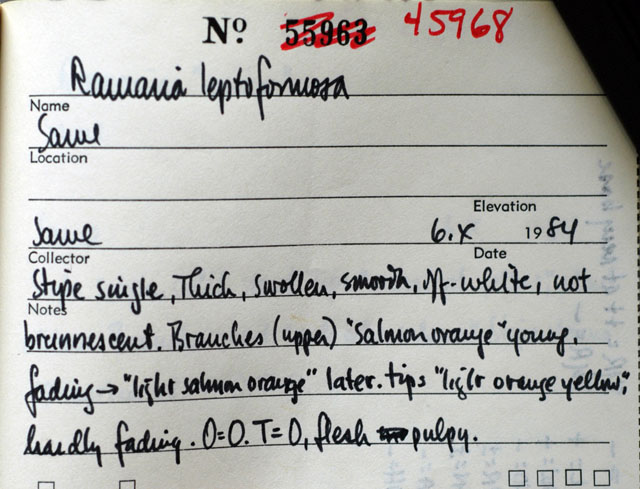 Nº 55963 45968
Ramaria leptoformosa
Name
Same
Location
Elevation
Same 6.X 1984
Collector Date
Stipe single, Thick, swollen, smooth, off-white, not
Notes
brunnescent. Branches (upper) "salmon orange" young,
fading → "light salmon orange" later. tips "light orange yellow",
hardly fading. O=O. T=O, flesh pulpy.